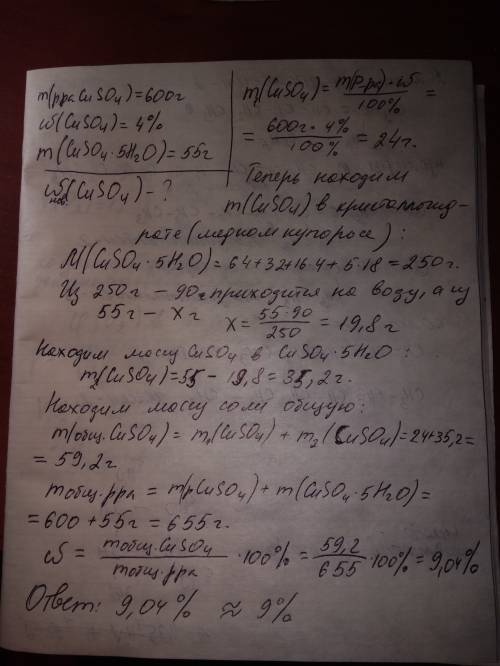 m(р-ра CuSO4) = 600г
ω(CuSO4) = 4%
m(CuSO4·5H2O) = 55г
ω нов.(CuSO4) - ?
m1(CuSO4) = m(р-ра)·ω / 100% =
= 600г·4% / 100% = 24г.
Теперь находим
m(CuSO4) в кристаллогид-
рате (медном купоросе):
M(CuSO4·5H2O) = 64+32+16·4+5·18 = 250г.
Из 250г – 90г приходится на воду, а из
55г – x г x = 55·90 / 250 = 19,8г
Находим массу CuSO4 в CuSO4·5H2O:
m2(CuSO4) = 55 – 19,8 = 35,2г.
Находим массу соли общую:
m(общ.CuSO4) = m1(CuSO4) + m2(CuSO4) = 24+35,2 =
= 59,2г.
mобщ.рра = m(рCuSO4) + m(CuSO4·5H2O) =
= 600 + 55г = 655г.
ω = mобщ.CuSO4 / mобщ.рра ·100% = 59,2 / 655 ·100% = 9,04%
Ответ: 9,04% ≈ 9%